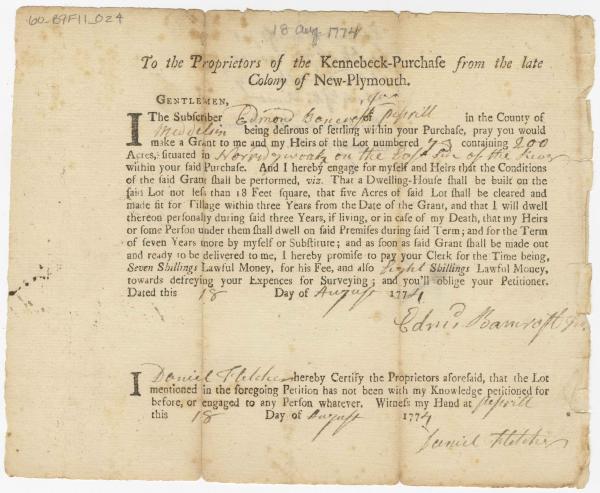 60-B9F11_024
18 Aug 1774
To the Proprietors of the Kennebeck-Purchase from the late
Colony of New-Plymouth.
GENTLEMEN,
I The Subscriber Edmond Bancroft Jun of Peprill in the County of
Meddelsin being desirous of settling within your Purchase, pray you would
make a Grant to me and my Heirs of the Lot numbered 73 containing 200
Acres, situated in Norridgwonk on the East side of the River
within your said Purchase. And I hereby engage for myself and Heirs that the Conditions
of the said Grant shall be performed, viz. That a Dwelling-House shall be built on the
said Lot not less than 18 Feet square, that five Acres of said Lot shall be cleared and
made fit for Tillage within three Years from the Date of the Grant, and that I will dwell
thereon personally during said three Years, if living, or in case of my Death, that my Heirs
or some Person under them shall dwell on said Premises during said Term; and for the Term
of seven Years more by myself or Substitute; and as soon as said Grant shall be made out
and ready to be delivered to me, I hereby promise to pay your Clerk for the Time being,
Seven Shillings Lawful Money, for his Fee, and also Eight Shillings Lawful Money,
towards defreying your Expences for Surveying; and you'll oblige your Petitioner.
Dated this 18 Day of August 1774
Edmd Bancroft Jun.
I Daniel Fletcher hereby Certify the Proprietors aforesaid, that the Lot
mentioned in the foregoing Petition has not been with my Knowledge petitioned for
before, or engaged to any Person whatever. Witness my Hand at Peprill
this 18 Day of August 1774
Daniel Fletcher